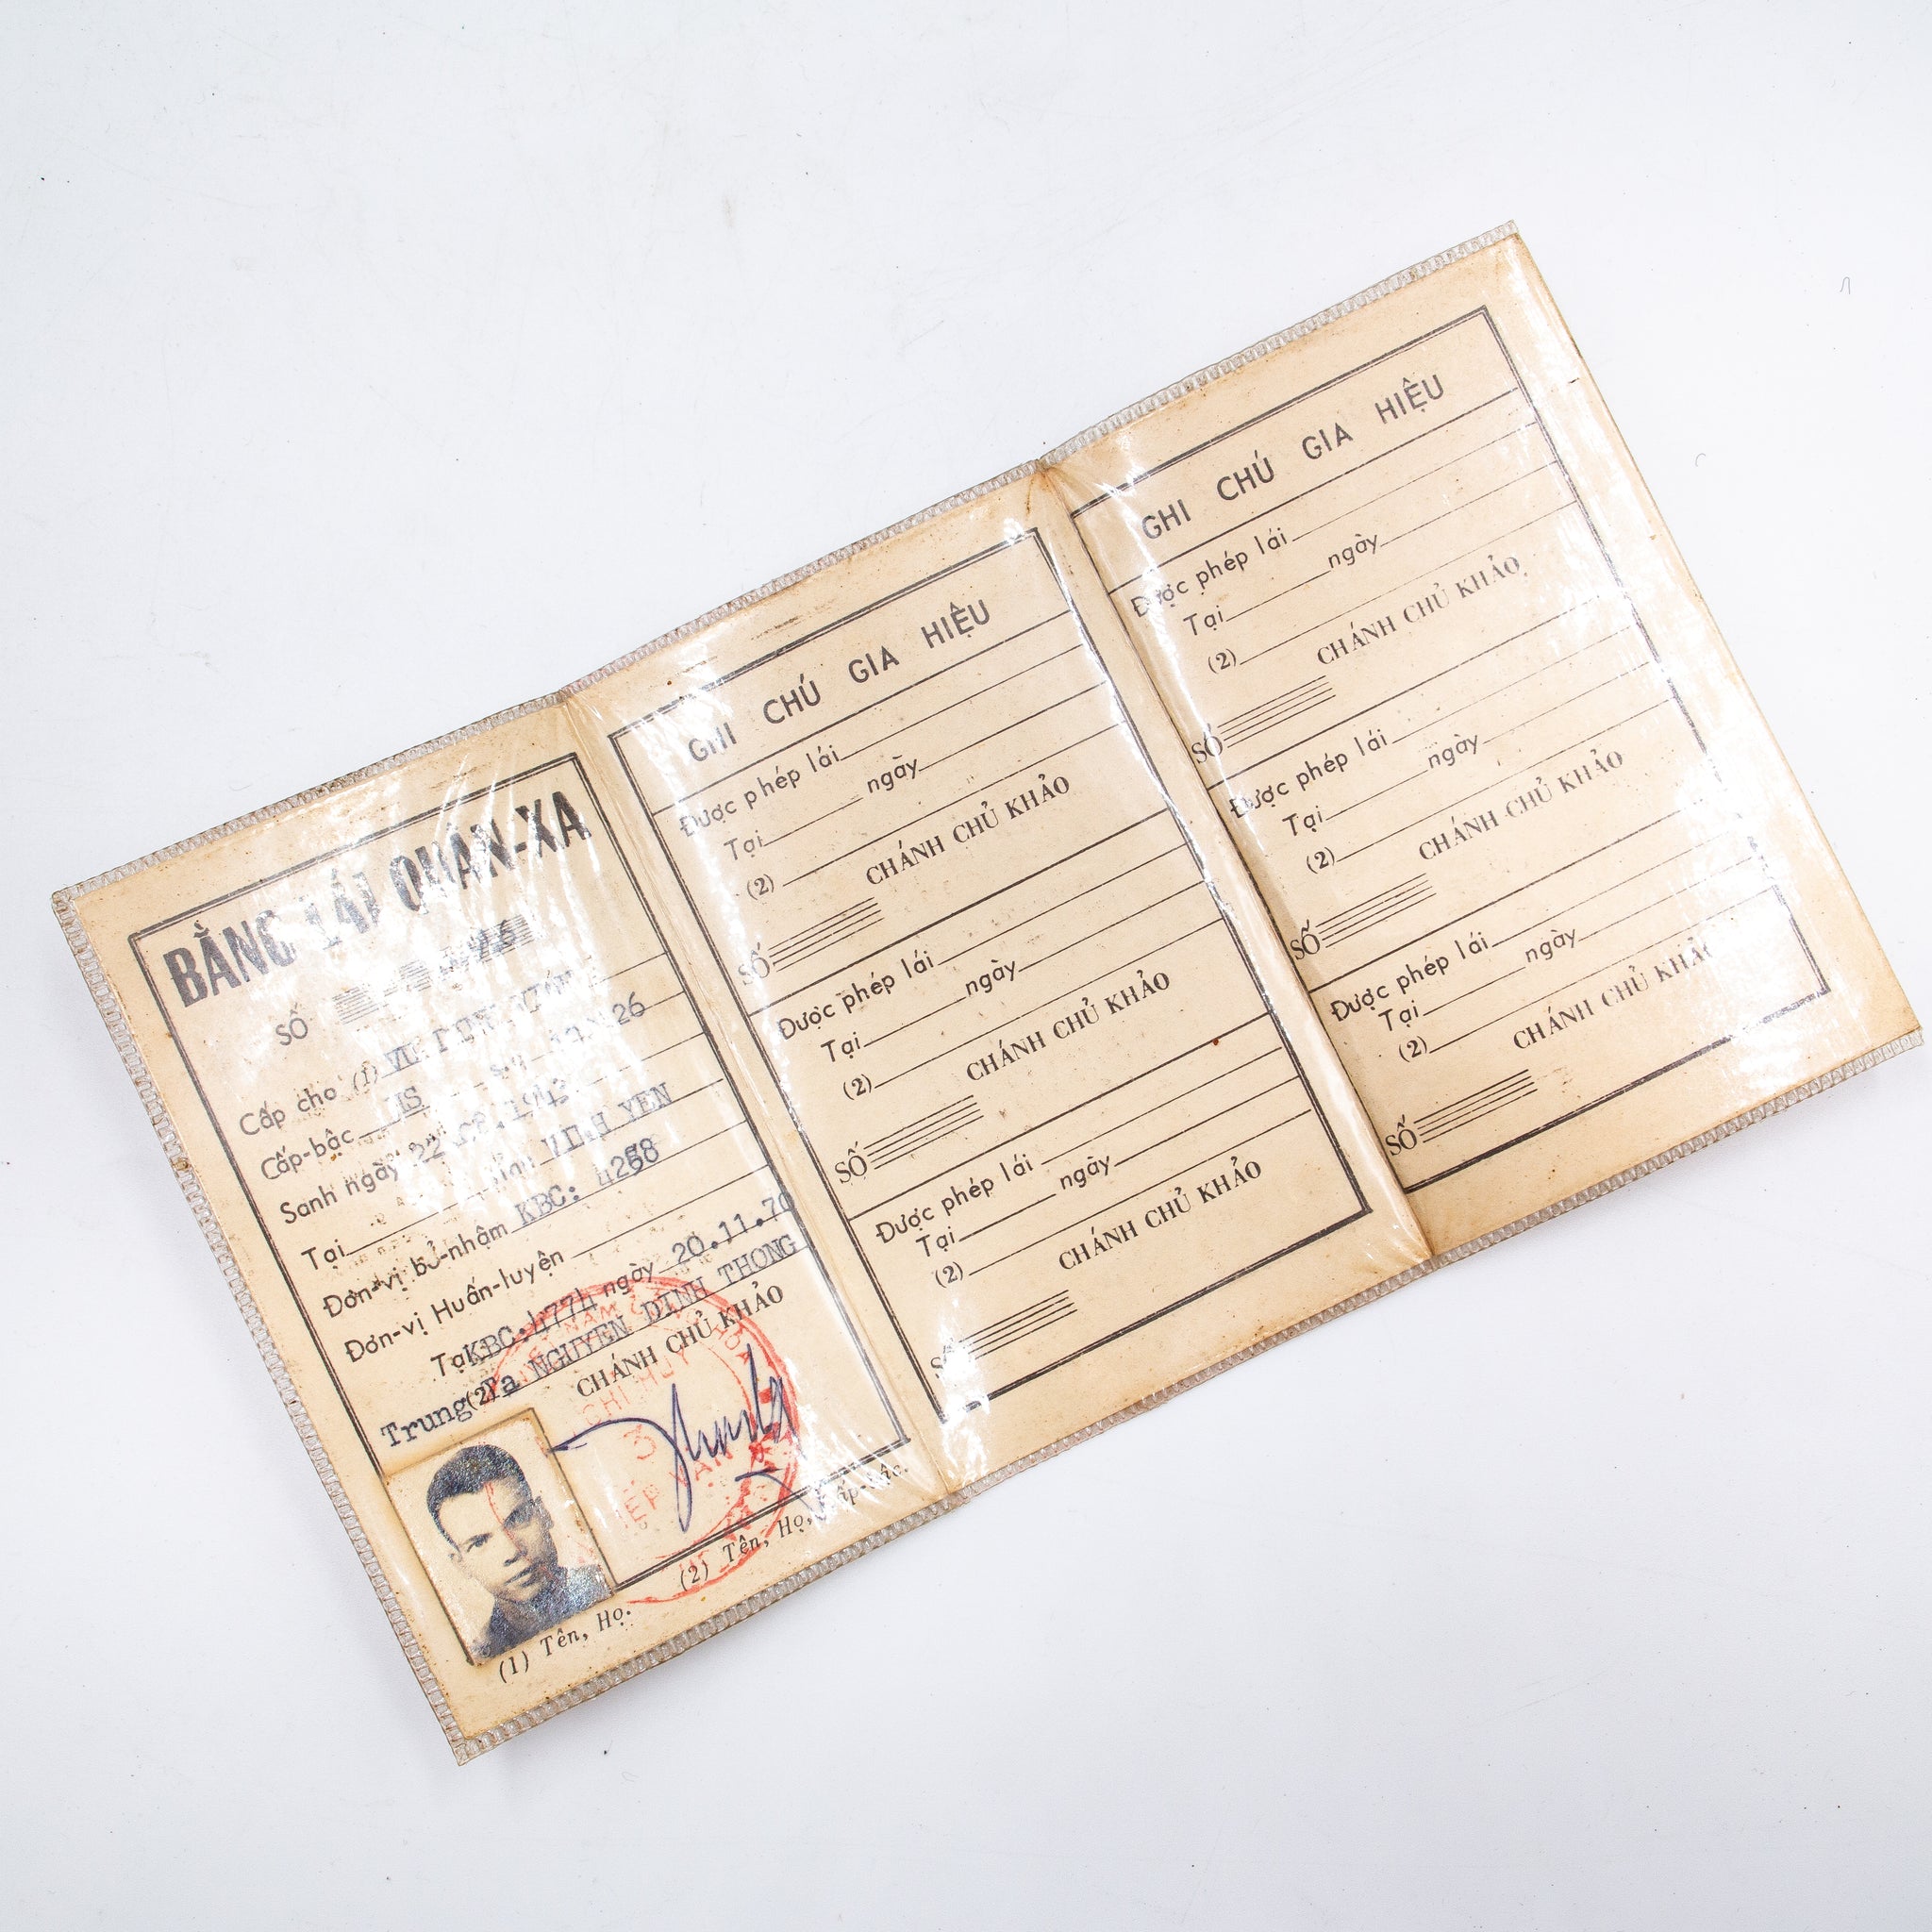 BẰNG LÁI QUÂN-XA
SỐ
Cấp cho (1)
Cấp-bậc HS
Sanh ngày 22
Tại VINH YEN
Đơn-vị bổ-nhậm KBC: 4268
Đơn-vị Huấn-luyện
Tại KBC:4774 ngày 20.11.70
Trung (2) Ta NGUYEN DINH THONG
CHÁNH CHỦ KHẢO
(1) Tên, Họ.
(2) Tên, Họ, Cấp-bậc.
GHI CHÚ GIA HIỆU
Được phép lái
Tại ngày
(2)
CHÁNH CHỦ KHẢO
SỐ
Được phép lái
Tại ngày
(2)
CHÁNH CHỦ KHẢO
SỐ
Được phép lái
Tại ngày
(2)
CHÁNH CHỦ KHẢO
SỐ
GHI CHÚ GIA HIỆU
Được phép lái
Tại ngày
(2)
CHÁNH CHỦ KHẢO
SỐ
Được phép lái
Tại ngày
(2)
CHÁNH CHỦ KHẢO
SỐ
Được phép lái
Tại ngày
(2)
CHÁNH CHỦ KHẢO
SỐ